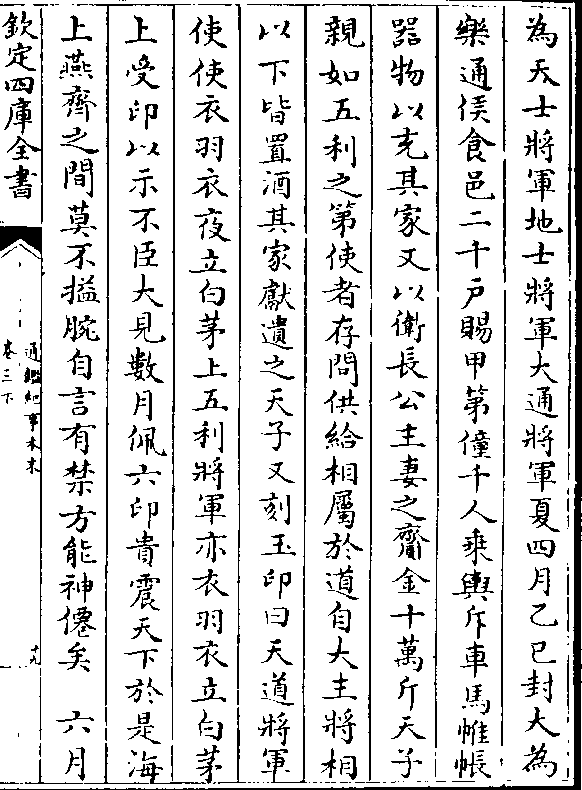 為天士將軍地士將軍大通將軍夏四月乙巳封大為
樂通侯食邑二千戸賜甲第僮千人乘輿斥車馬帷帳
器物以充其家又以衛長公主妻之齎金十萬斤天子
親如五利之第使者存問供給相屬於道自大主將相
以下皆置酒其家獻遺之天子又刻玉印曰天道將軍
使使衣羽衣夜立白茅上五利將軍亦衣羽衣立白茅
上受印以示不臣大見數月佩六印貴震天下於是海
上燕齊之間莫不搤腕自言有禁方能神僊矣　六月
欽定四庫全書
通鑑紀事本末
卷三下
十九